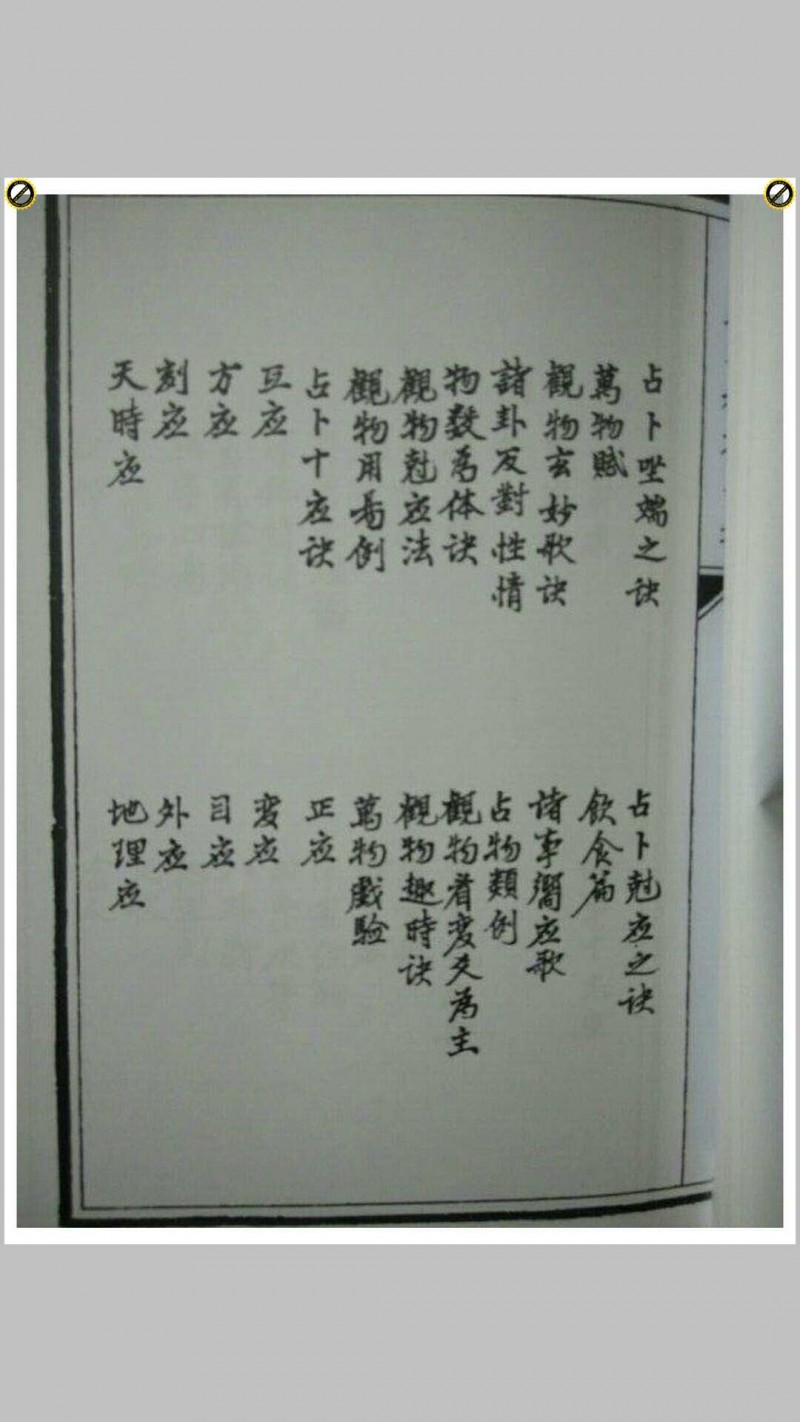 占卜坐端之诀
占卜尅应之诀
萬物賦
飲食篇
觀物玄妙歌诀
诸事響应歌
諸卦反對性情
占物類例
物数為体诀
觀物看变爻為主
觀物尅应法
觀物趣時诀
觀物用易例
萬物戲验
占卜十应诀
正应
互应
变应
方应
日应
刻应
外应
天時应
地理应